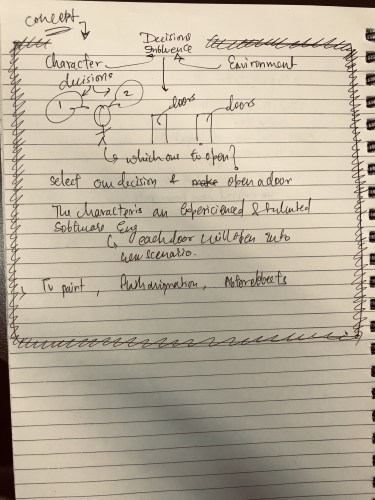 concept
Decisions
Influence
Character
Environment
decisions
1
2
doors
doors
which one to open?
select one decision & make open a door
The character is an Experienced & talented
Software Eng
each door will open into
new scenario.
Tv paint, , After effects